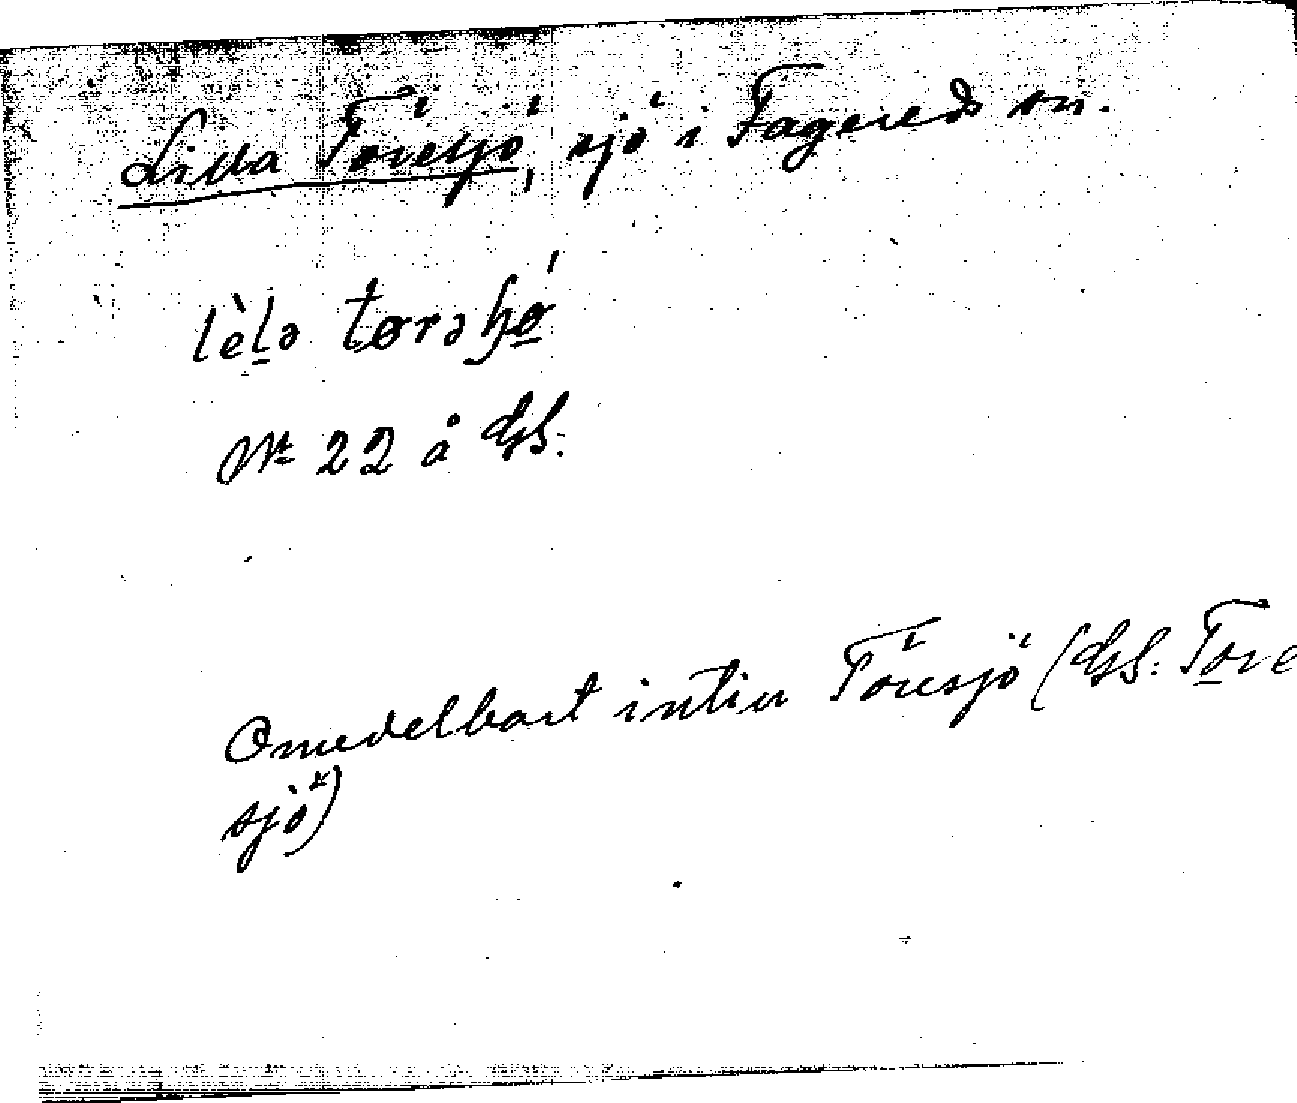 Lilla Töresjö, sjö i Fagereds sn.
lèlə tørəɧø´
Nr 22 å GS.
Omedelbart intill Töresjö (GS: Tore
sjö*)